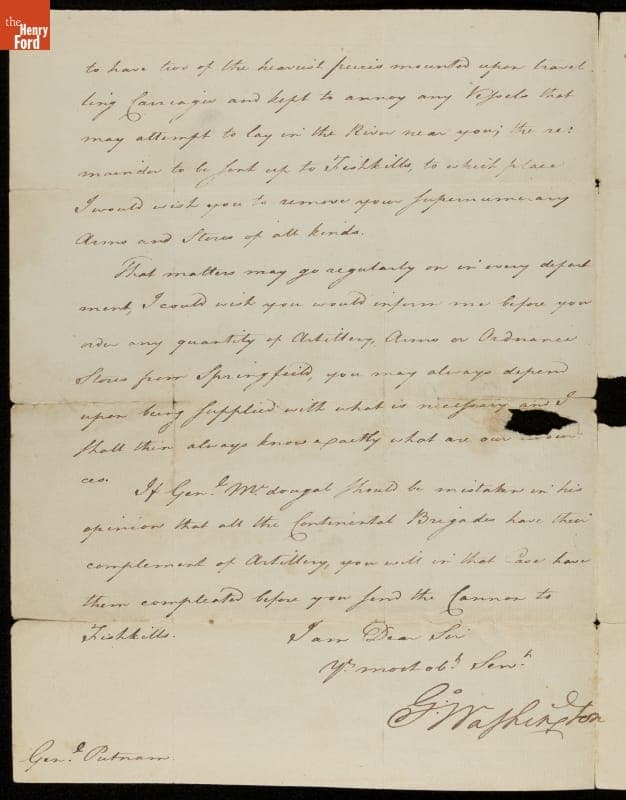 the
Henry
Ford
to have two of the heaviest pieces mounted upon travel
ling Carriages and kept to annoy any Vessels that
may attempt to lay in the River near you; the re:
mainder to be sent up to Fishkills, to which place
I would wish you to remove your supernumerary
Arms and Stores of all kinds.
That matters may go regularly on in every depart
ment, I could wish you would inform me before you
order any quantity of Artillery, Arms or Ordnance
Stores from Springfield, you may always depend
upon being supplied with what is necessary and I
shall then always know exactly what are our
ces.
If Genl. McDougal should be mistaken in his
opinion that all the Continental Brigades have their
complement of Artillery, you will in that Case have
them compleated before you send the Cannon to
Fishkills. I am Dear Sir
Yr. most obt. Servt.
Go. Washington
Genl. Putnam.